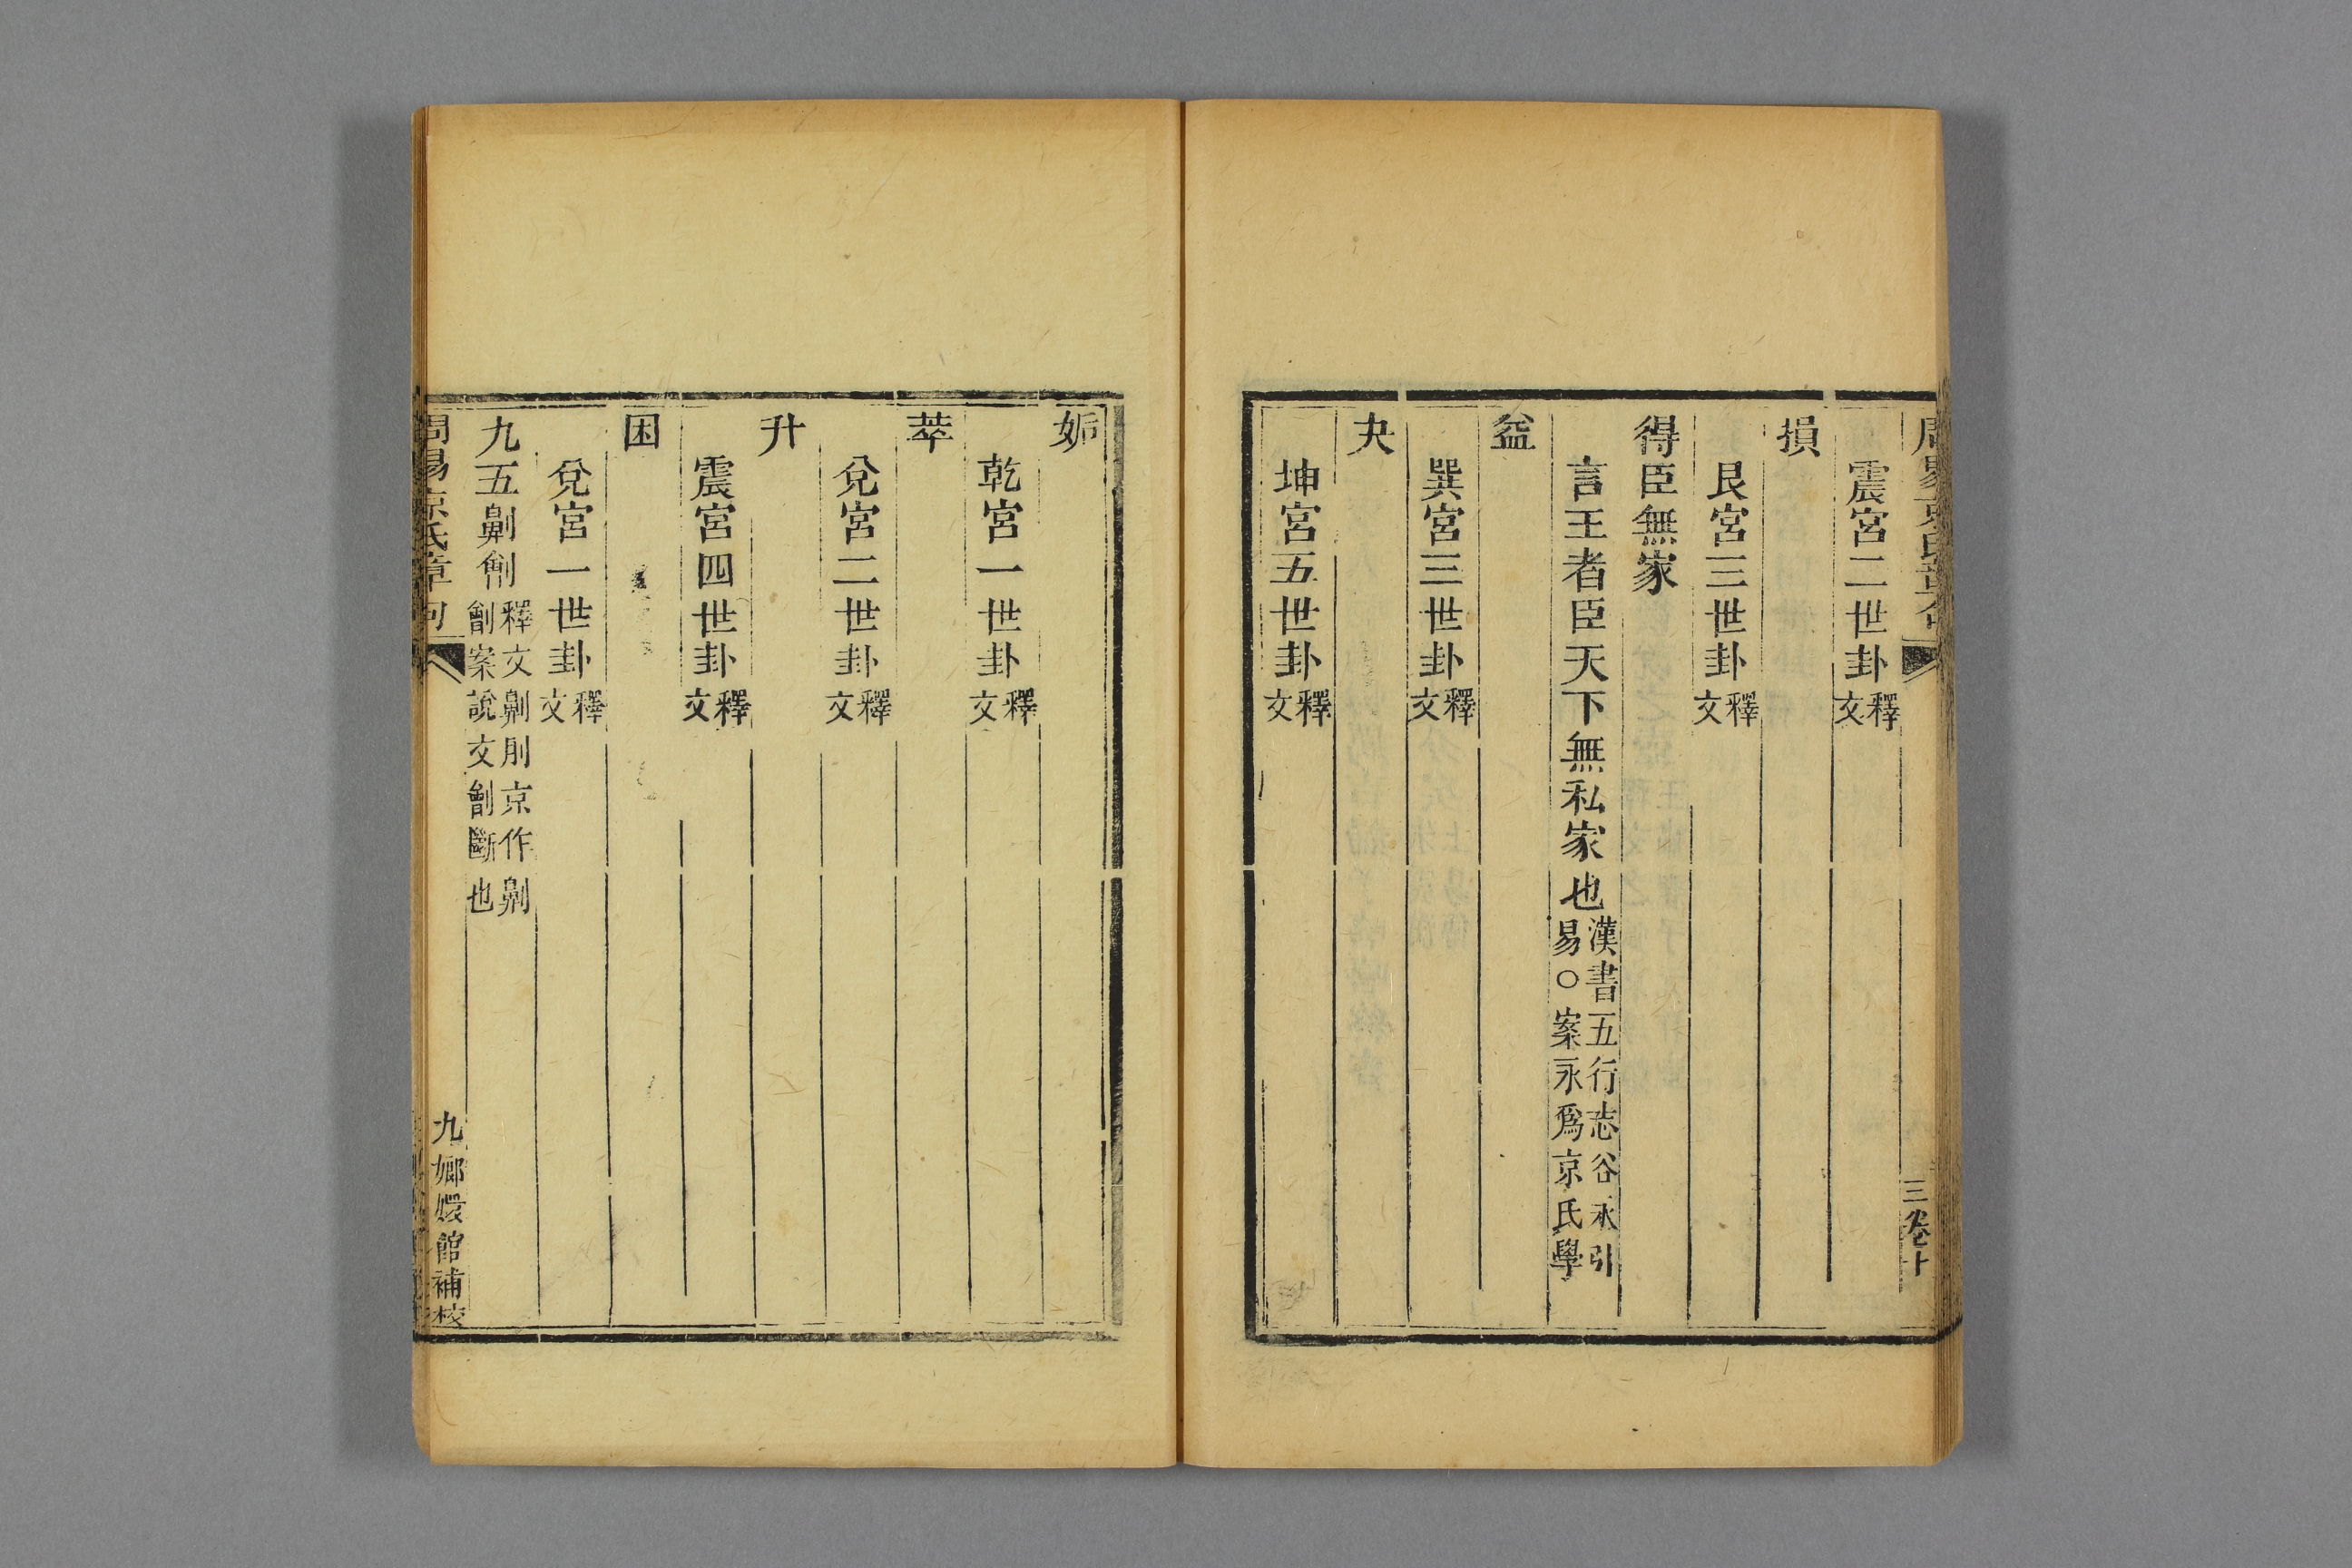 周易京氏章句
三卷十
震宮二世卦釋文
損
艮宮三世卦釋文
得臣無家
言王者臣天下無私家也漢書五行志谷永引易○案永爲京氏學
益
巽宮三世卦釋文
夬
坤宮五世卦釋文
姤
乾宮一世卦釋文
萃
兌宮二世卦釋文
升
震宮四世卦釋文
困
兌宮一世卦釋文
九五劓劊釋文劓刖京作劓劊案說文劊斷也
周易京氏章句
九嫏嬛館補校